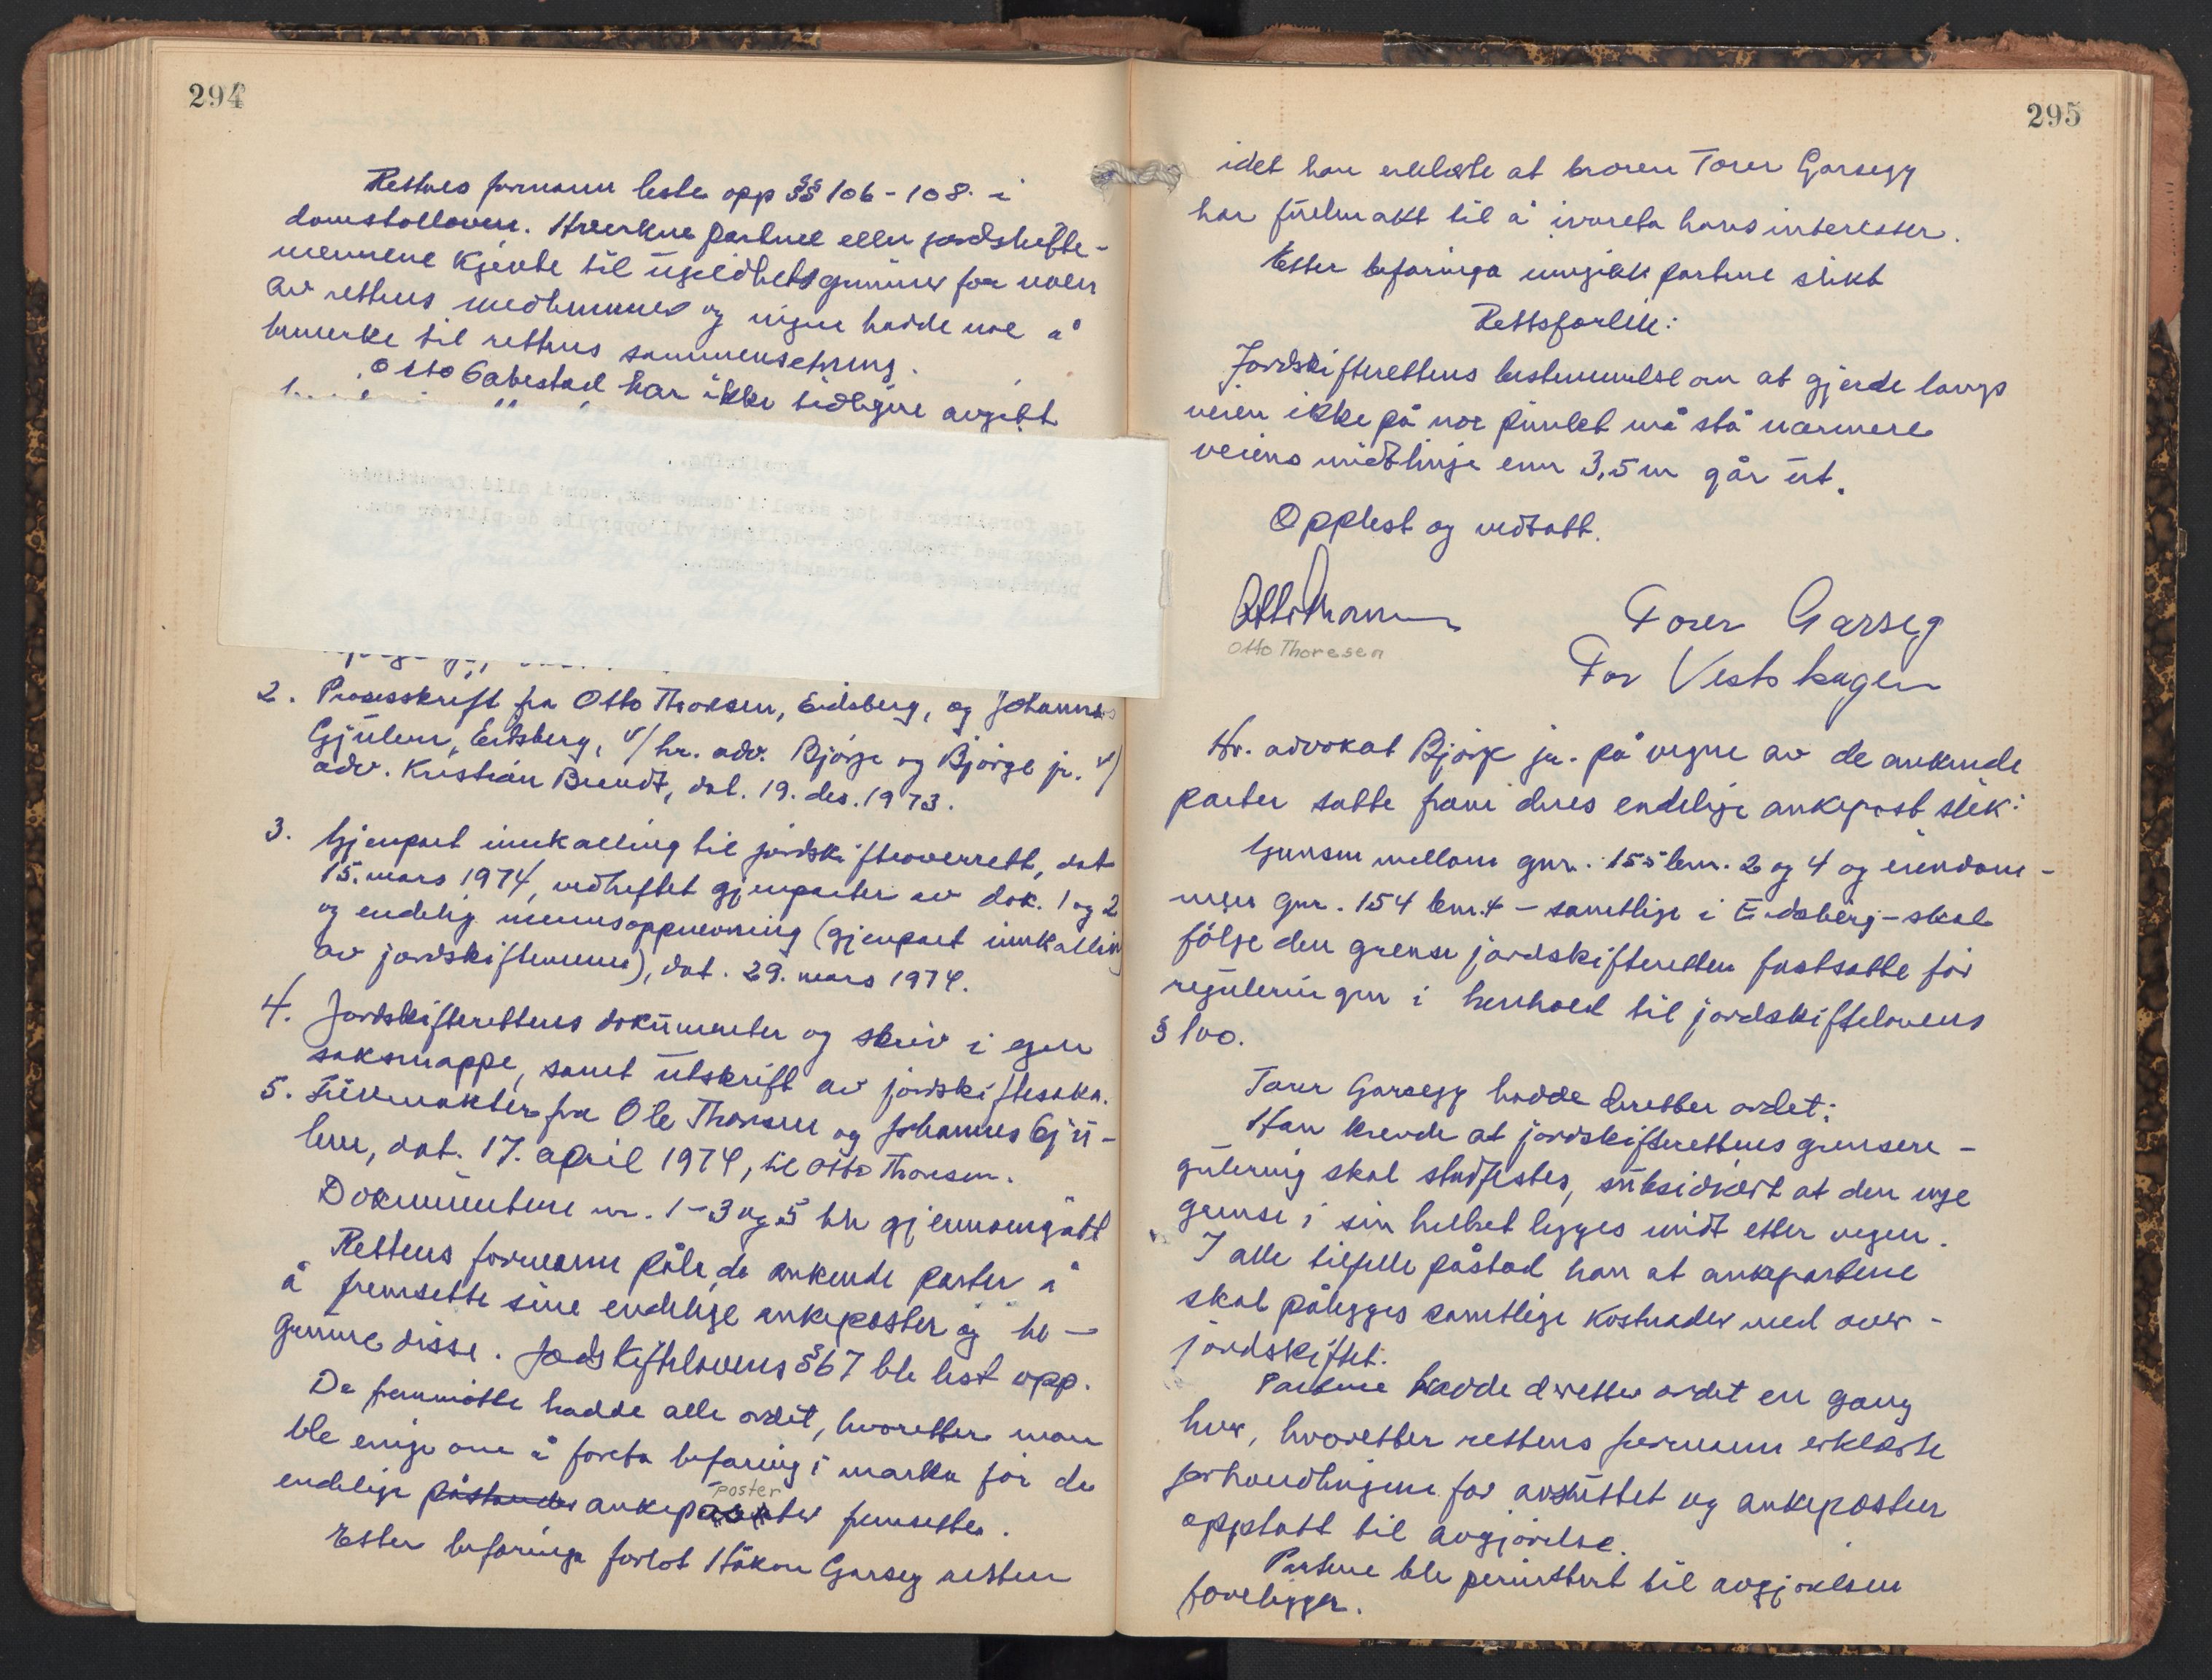 294
Rettens formann leste opp §§ 106-108 i
domstolloven. Hverken partene eller jordskifte-
mennene kjente til ugildhetsgrunner for noen
av rettens medlemmer og ingen hadde noe å
bemerke til rettens sammensetning.
Otto Gabestad har ikke tidligere avgitt
2. Prosesskrift fra Otto Thoresen, Eidsberg, og Johannes
Gjulem, Eidsberg, v/ hr. adv. Bjørge og Bjørge jr. v/
adv. Kristian Brendt, dat. 19. des. 1973.
3. Gjenpart innkalling til jordskifteoverrett, dat
15. mars 1974, vedheftet gjenparter av dok. 1 og 2
og endelig mennsoppnevning (gjenpart innkalling
av jordskiftemenn), dat. 29. mars 1974.
4. Jordskifterettens dokumenter og skriv i egen
saksmappe, samt utskrift av jordskiftesaka.
5. Fullmakter fra Ole Thoresen og Johannes Gju-
lem, dat. 17. april 1974, til Otto Thoresen.
Dokumentene nr. 1-3 og 5 ble gjennomgått
Rettens formann påla de ankende parter å
å fremsette sine endelige ankeposter og be-
grunne disse. Jordskiftelovens § 67 ble lest opp.
De fremmøtte hadde alle ordet, hvoretter man
ble enige om å foreta befaring i marka før de
poster
endelige påstander ankeposter fremsettes.
Etter befaringa forlot Håkon Garseg retten
295
idet han erklærte at broren Torer Garsegg
har fullmakt til å ivareta hans interesser.
Etter befaringa inngikk partene slikt
Rettsforlik:
Jordskifterettens bestemmelse om at gjerde langs
veien ikke på noe punkt må stå nærmere
veiens midtlinje enn 3,5 m går ut.
Opplest og vedtatt.
Otto Thoresen
Torer Garseg
For Vestskogen
Hr. advokat Bjørge jr. på vegne av de ankende
parter satte fram deres endelige ankepost slik:
Grensen mellom gnr. 155 bnr. 2 og 4 og eiendom-
men gnr. 154 bnr. 4 - samtlige i Eidsberg - skal
følge den grense jordskifteretten fastsatte før
reguleringen i henhold til jordskiftelovens
§ 100.
Torer Garsegg hadde deretter ordet:
Han krevde at jordskifterettens grensere-
gulering skal stadfestes, subsidiært at den nye
grense i sin helhet legges midt etter vegen.
I alle tilfelle påstod han at ankepartene
skal pålegges samtlige kostnader med over-
jordskiftet.
Partene hadde deretter ordet en gang
hver, hvoretter rettens formann erklærte
forhandlingene for avsluttet og ankeposten
opptatt til avgjørelse.
Partene ble permittert til avgjørelsen
foreligger.